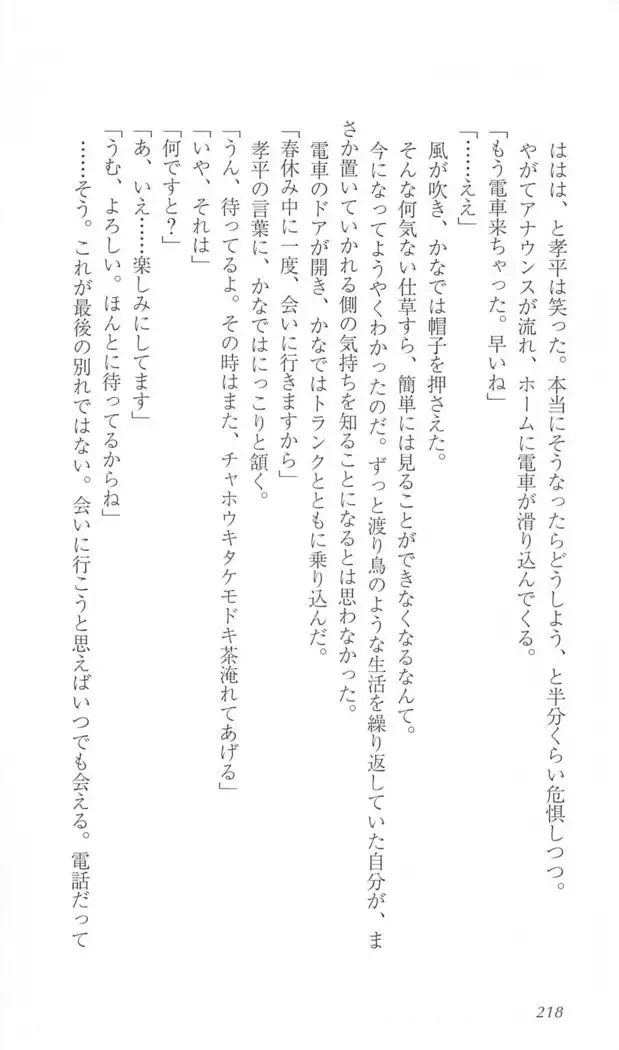 ははは、と孝平は笑った。本当にそうなったらどうしよう、と半分くらい危惧しつつ。
やがてアナウンスが流れ、ホームに電車が滑り込んでくる。
「もう電車来ちゃった。早いね」
「……ええ」
風が吹き、かなでは帽子を押さえた。
そんな何気ない仕草すら、簡単には見ることができなくなるなんて。
今になってようやくわかったのだ。ずっと渡り鳥のような生活を繰り返していた自分が、ま
さか置いていかれる側の気持ちを知ることになるとは思わなかった。
電車のドアが開き、かなではトランクとともに乗り込んだ。
「春休み中に一度、会いに行きますから」
孝平の言葉に、かなではにっこりと頷く。
「うん、待ってるよ。その時はまた、チャホウキタケモドキ茶淹れてあげる」
「いや、それは」
「何ですと?」
「あ、いえ……楽しみにしてます」
「うむ、よろしい。ほんとに待ってるからね」
……そう。これが最後の別れではない。会いに行こうと思えばいつでも会える。電話だって
218